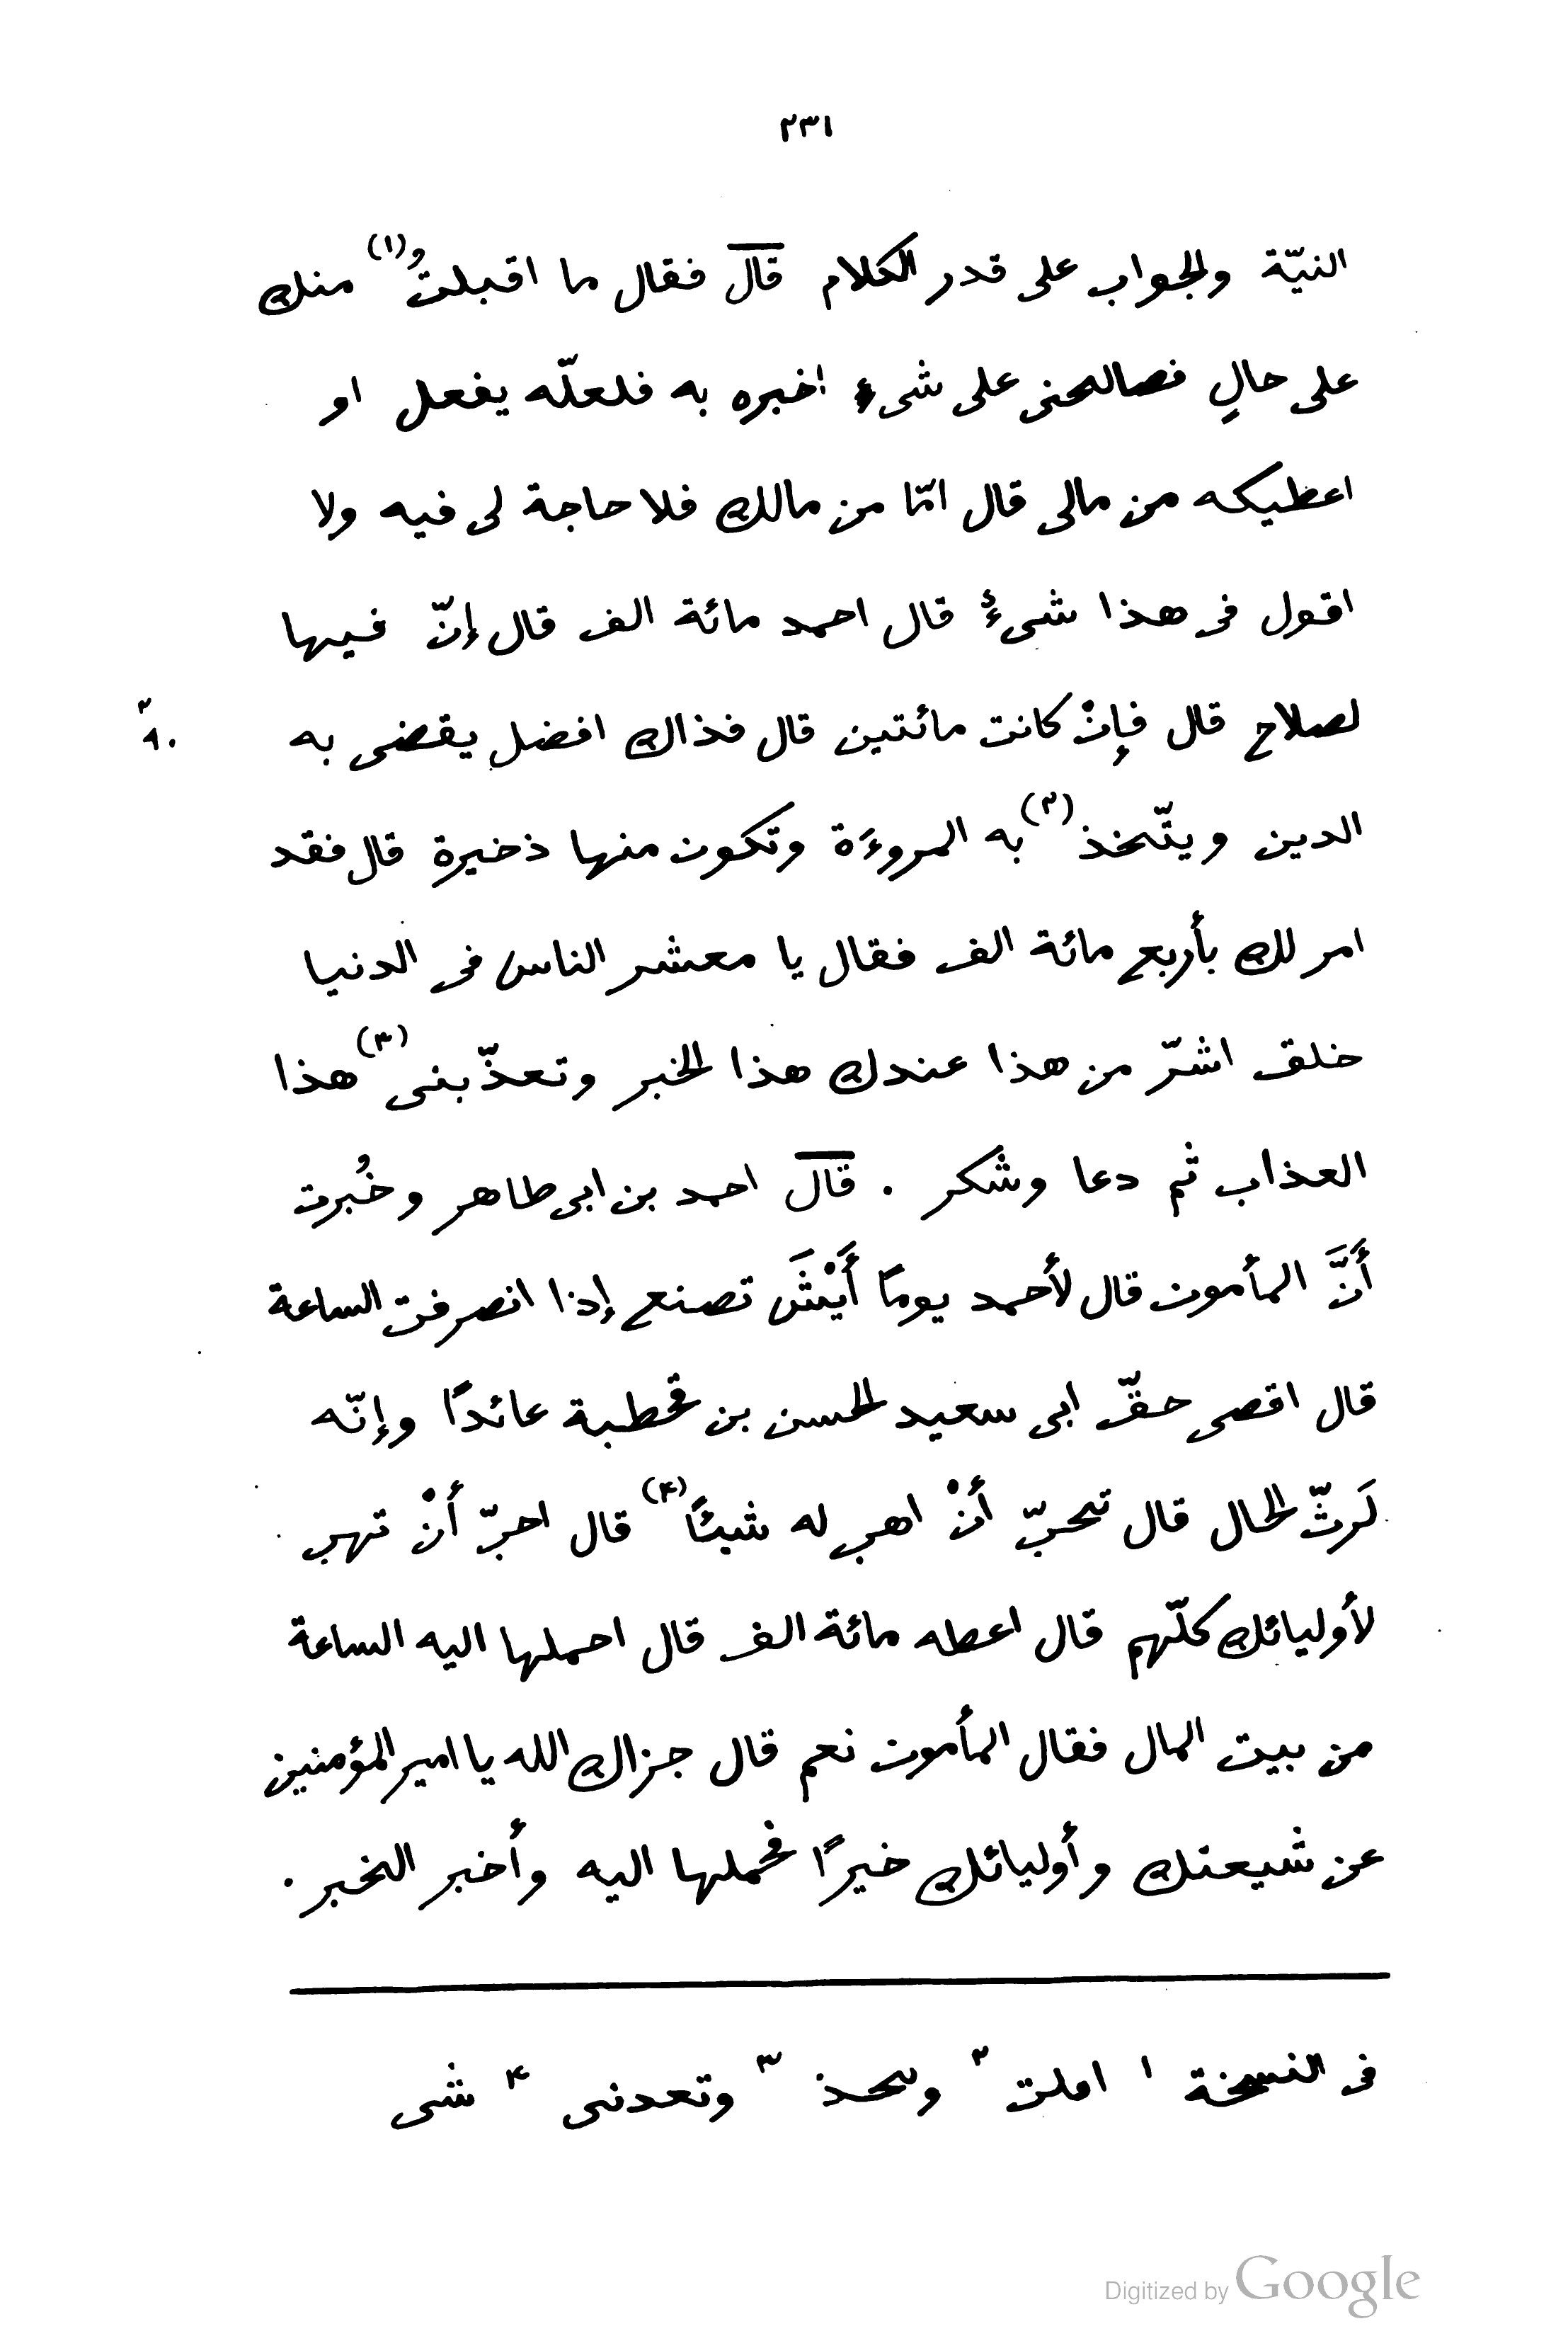 ٢٣١
النيّة والجواب على قدر الكلام قال فقال ما اقبلتُ(١) منك
على حالٍ فصالحنى على شىء اخبره به فلعلّه يفعل او
اعطيكه من مالى قال امّا من مالك فلا حاجة لى فيه ولا
اقول فى هذا شىءٌ قال احمد مائة الف قال إنّ فيها
لصلاح قال فإنْ كانت مائتين قال فذاك افضل يقضى به
الدين ويتّخذ(٢) به المروءَة وتكون منها ذخيرة قال فقد
امر لك بأربع مائة الف فقال يا معشر الناس فى الدنيا
خلق اشرّ من هذا عندك هذا الخبر وتعذّبنى(٣) هذا
العذاب ثم دعا وشكر . قال احمد بن ابى طاهر وخُبرت
أَنَّ المأمون قال لأحمد يومًا أَيْشَ تصنع إذا انصرفت الساعة
قال اقضى حقّ ابى سعيد الحسن بن قحطبة عائدًا وإنّه
لَرثّ الحال قال تحبّ أنْ اهب له شيئًا(٤) قال احبّ أنْ تهب
لأوليائك كلّهم قال اعطه مائة الف قال احملها اليه الساعة
من بيت المال فقال المأمون نعم قال جزاك الله يا امير المؤمنين
عن شيعتك وأوليائك خيرًا فحملها اليه وأخبر الخبر .
فى النسخة ١ املت ٢ وىىحذ ٣ وتعدنى ٤ شى
Digitized by Google